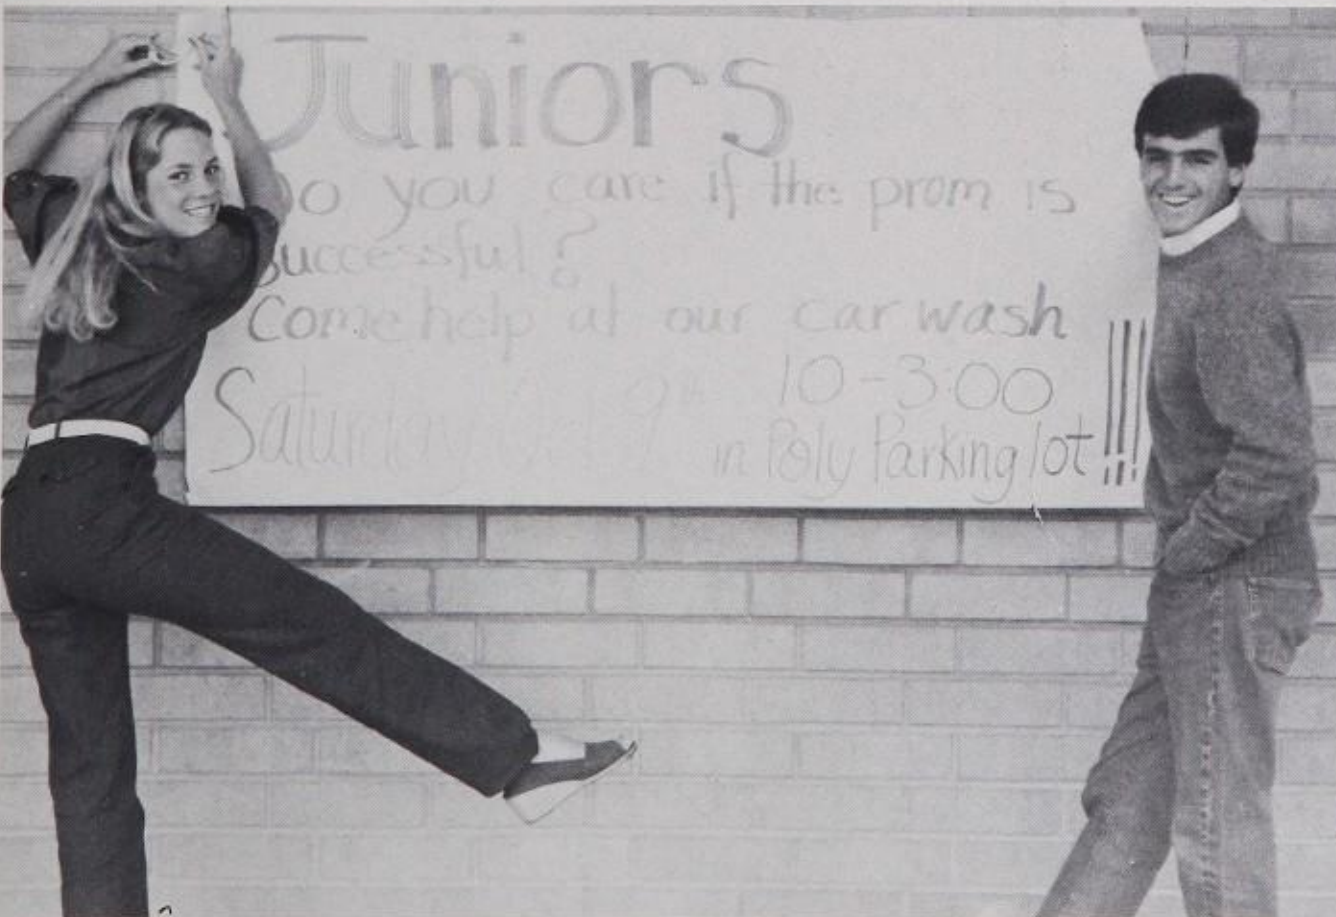 Juniors
Do you care if the prom is
successful?
Come help at our car wash
Saturday Oct 9th 10-3:00
in Poly Parking lot!!!